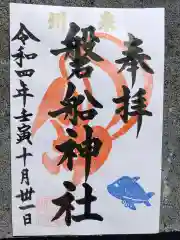 泉州
奉拝
磐船神社
令和四年壬寅十月卅一日